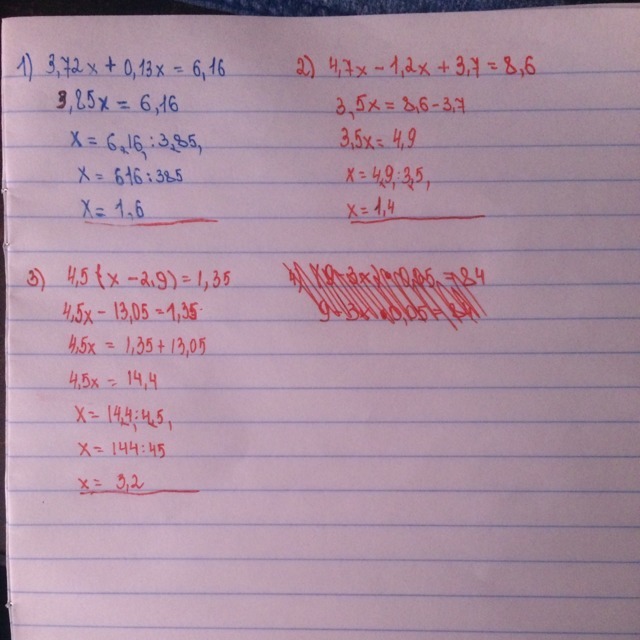 1) 3,72x + 0,13x = 6,16
3,85x = 6,16
x = 6,16 : 3,85
x = 616 : 385
x = 1,6
2) 4,7x - 1,2x + 3,7 = 8,6
3,5x = 8,6 - 3,7
3,5x = 4,9
x = 4,9 : 3,5
x = 1,4
3) 4,5 (x - 2,9) = 1,35
4,5x - 13,05 = 1,35
4,5x = 1,35 + 13,05
4,5x = 14,4
x = 14,4 : 4,5
x = 144 : 45
x = 3,2